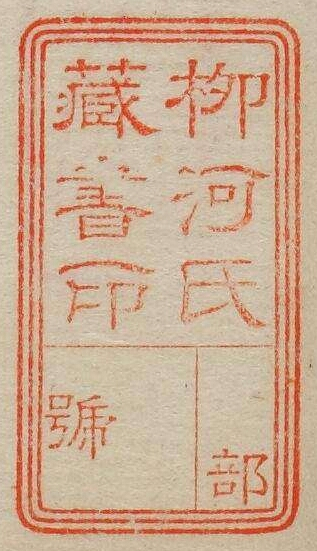 柳河氏
藏書印
部
號